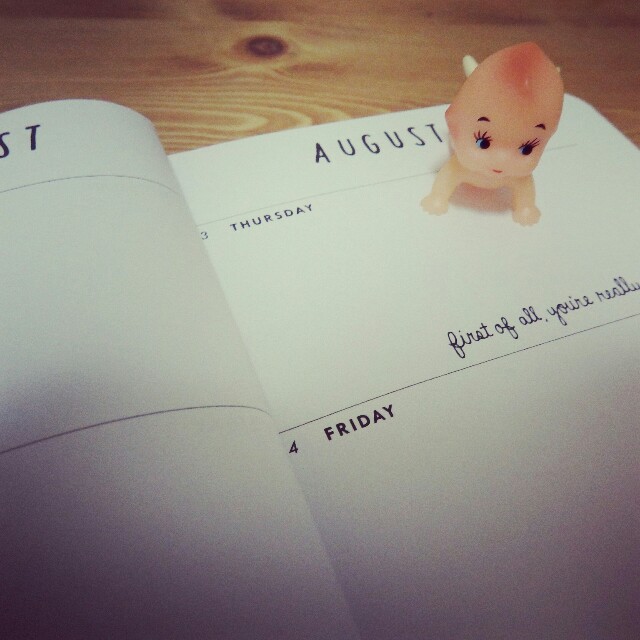 ST
AUGUST
3 THURSDAY
first of all, you're really
4 FRIDAY